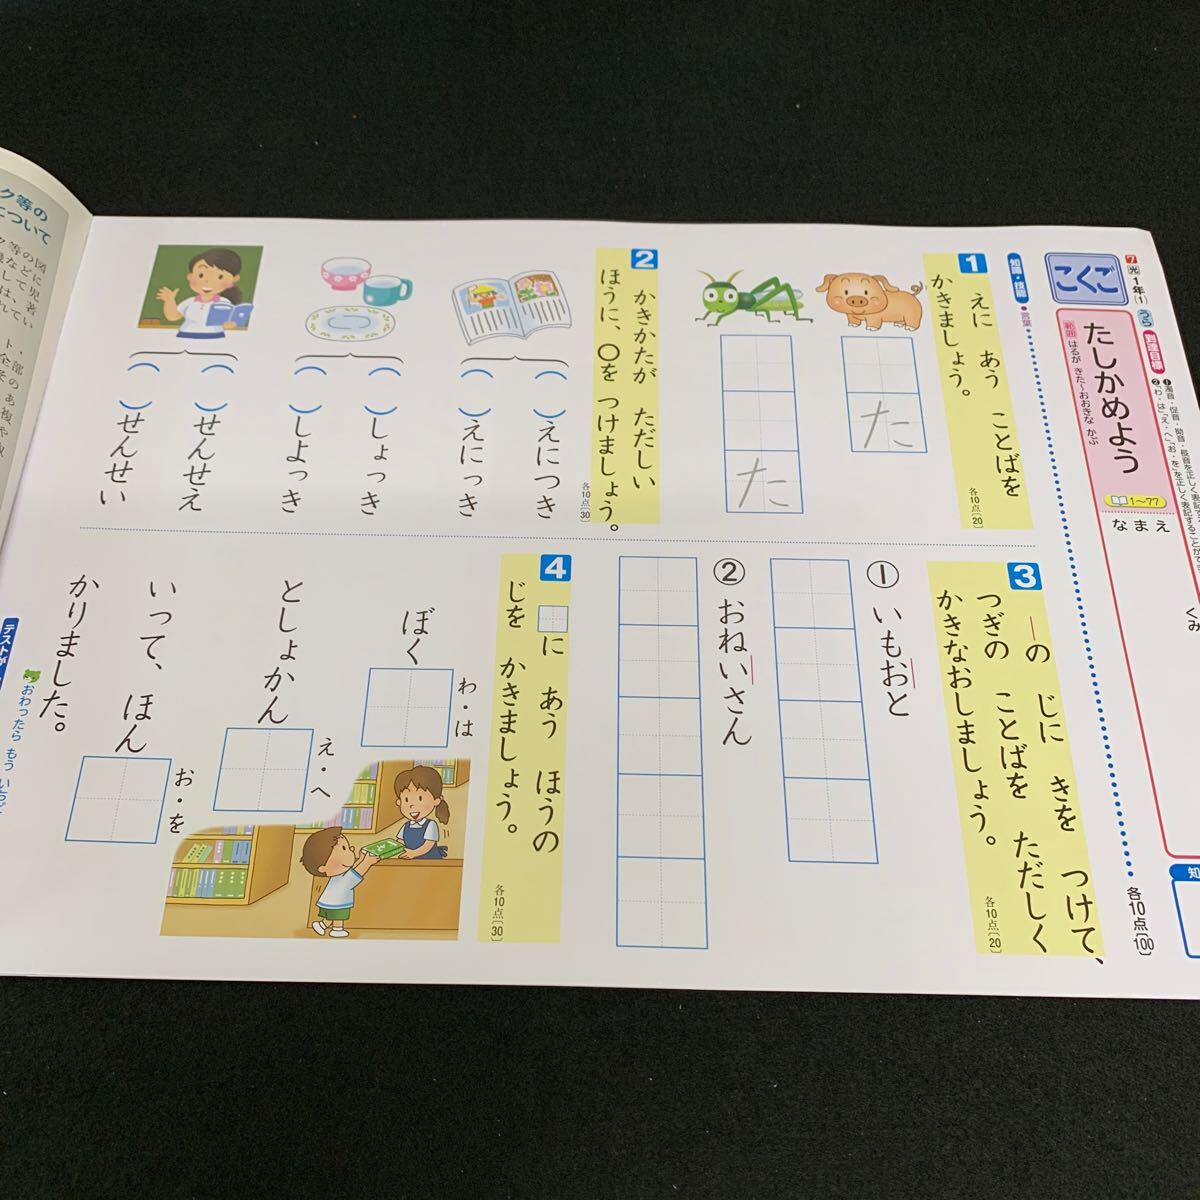 7 光 1年(1) うら
到達目標
こくご
たしかめよう
範囲 はるが きた〜おおきな かぶ
1〜77
なまえ
くみ
各10点〔100〕
知識・技能
言葉
1
えに あう ことばを
かきましょう。
各10点〔20〕
た
た
2
かきかたが ただしい
ほうに、○を つけましょう。
各10点〔30〕
( )えにつき
( )えにっき
( )しょっき
( )しよっき
( )せんせえ
( )せんせい
3
―の じに きを つけて、
つぎの ことばを ただしく
かきなおしましょう。
各10点〔20〕
① いもおと
② おねいさん
4
□に あう ほうの
じを かきましょう。
各10点〔30〕
ぼく□
わ・は
としょかん□
え・へ
いって、ほん□
お・を
かりました。
おわったら もう いちど
ク等の
について